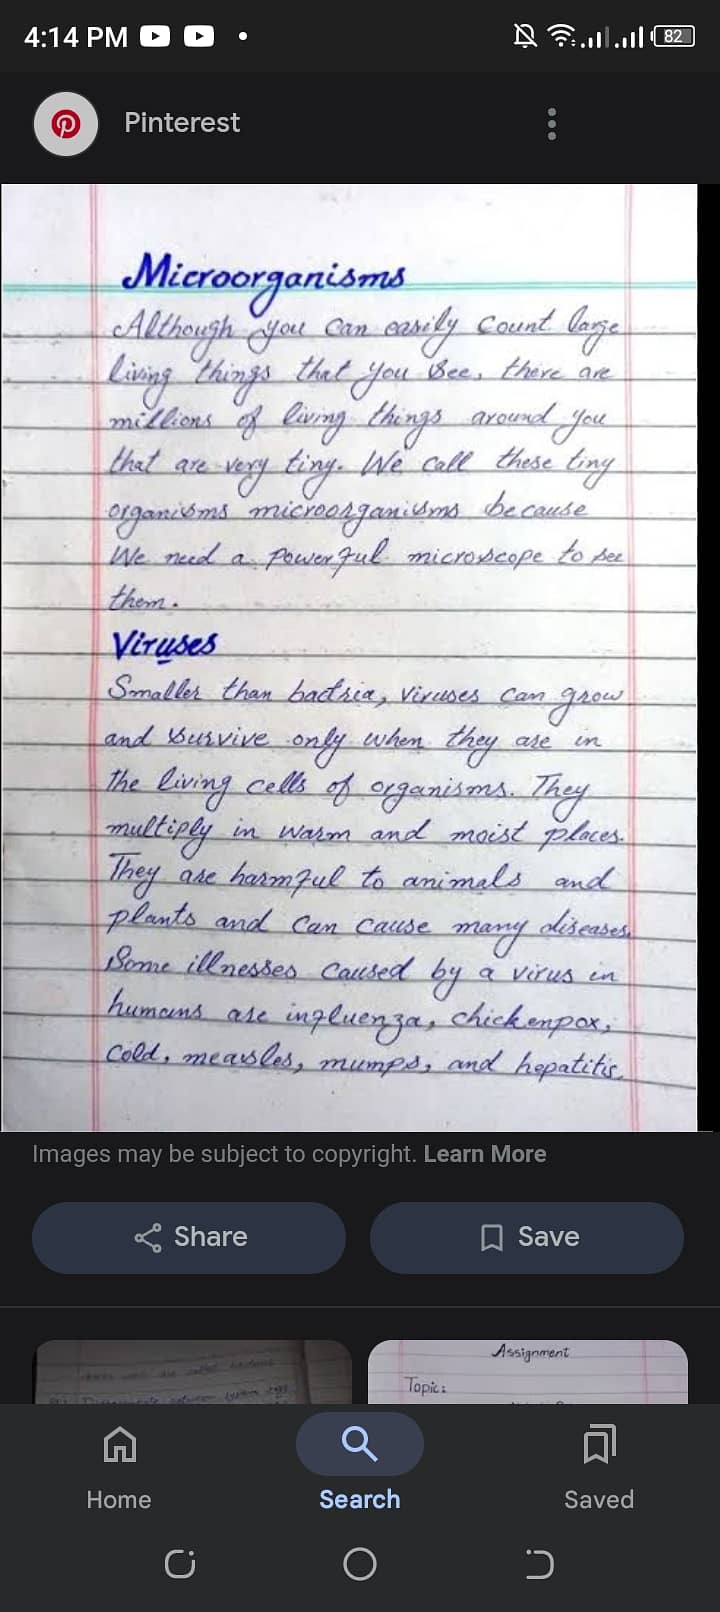 4:14 PM
82
Pinterest
Microorganisms
Although you can easily count large
living things that you see, there are
millions of living things around you
that are very tiny. We call these tiny
organisms microorganisms because
We need a powerful microscope to see
them.
Viruses
Smaller than bactria, viruses can grow
and survive only when they are in
the living cells of organisms. They
multiply in warm and moist places.
They are harmful to animals and
plants and can cause many diseases.
Some illnesses caused by a virus in
humans are influenza, chickenpox,
cold, measles, mumps, and hepatitis.
Images may be subject to copyright. Learn More
Share
Save
Assignment
Topic:
Home
Search
Saved